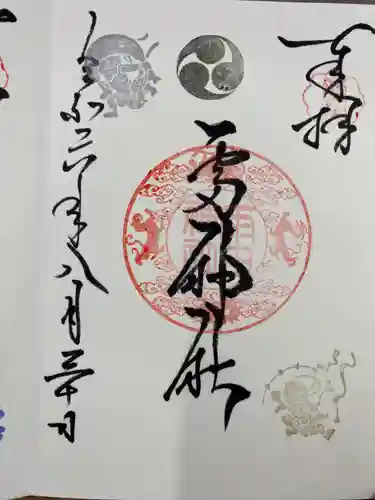 奉拝
雷神社
令和六年八月三十日